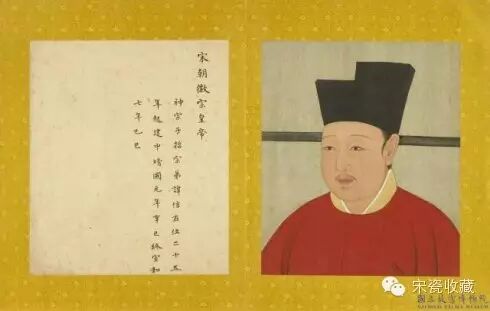 宋朝徽宗皇帝
神宗子哲宗弟諱佶在位二十五
年起建中靖國元年辛巳終宣和
七年乙巳
宋瓷收藏
國立故宮博物院
NATIONAL PALACE MUSEUM